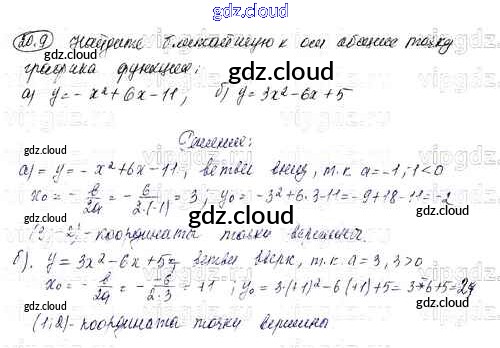 gdz.cloud
20.9 Найдите ближайшую к оси абсцисс точку
графика функции:
а) y = -x²+6x-11; б) y = 3x²-6x+5
Решение:
а) = y = -x²+6x-11; ветви вниз, т.к a=-1; -1<0
x₀ = -b/2a = -6/2·(-1) = 3; y₀ = -3²+6·3-11=-9+18-11=-2
gdz.cloud
(3;-2)-координаты точки вершины.
б). y = 3x²-6x+5; ветви вверх, т.к. a=3, 3>0
x₀ = -b/2a = - -6/2·3 = +1; y₀=3·(+1)²-6(+1)+5=3-6+5=2
gdz.cloud
(1;2)-координата точки вершины